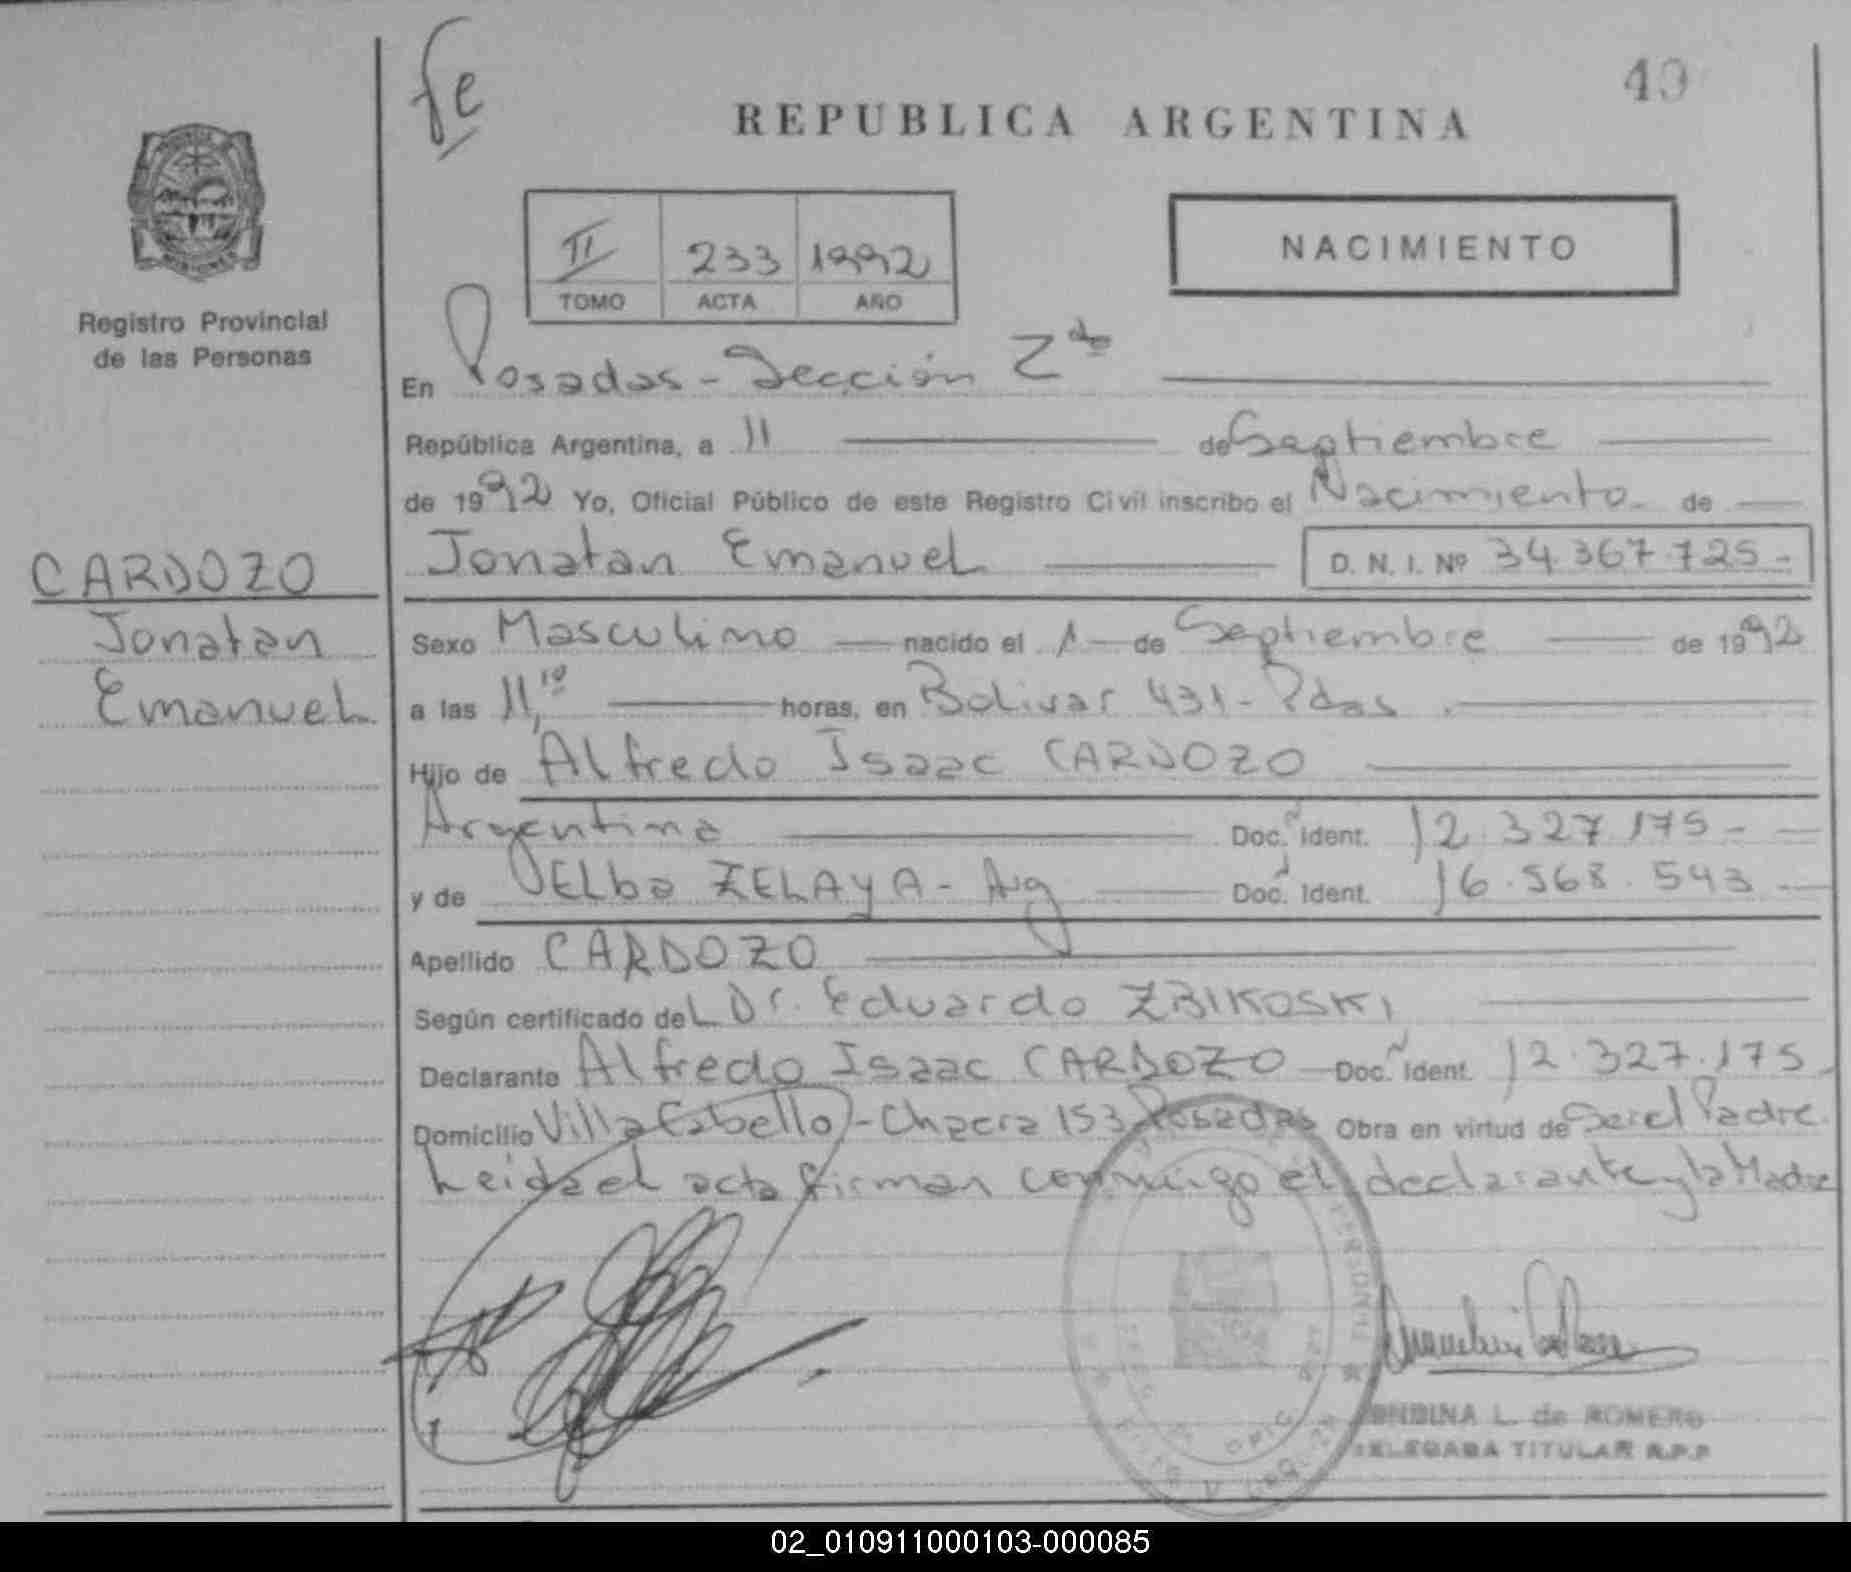 fe
49
REPUBLICA ARGENTINA
II 233 1992
TOMO ACTA AÑO
NACIMIENTO
Registro Provincial
de las Personas
En Posadas - Sección 2da
República Argentina, a 11 de Septiembre
de 1992 Yo, Oficial Público de este Registro Civil inscribo el Nacimiento - de
CARDOZO
Jonatan
Emanuel
Jonatan Emanuel D. N. I. Nº 34.367.725-
Sexo Masculino nacido el 1 de Septiembre de 1992
a las 11,10 horas, en Bolivar 431 - Pdas.
Hijo de Alfredo Isaac CARDOZO
Argentina Doc. Ident. 12.327.175-
y de ELba ZELAYA - Arg Doc. Ident. 16.568.543
Apellido CARDOZO
Según certificado del Dr. Eduardo ZBIKOSKI
Declarante Alfredo Isaac CARDOZO Doc. Ident. 12.327.175
Domicilio Villa Cabello - Chacra 153 Posadas Obra en virtud de Ser el Padre.
Leida el acta firman conmigo el declarante y la Madre
L. de ROMERO
TITULAR R.P.P
02_010911000103-000085